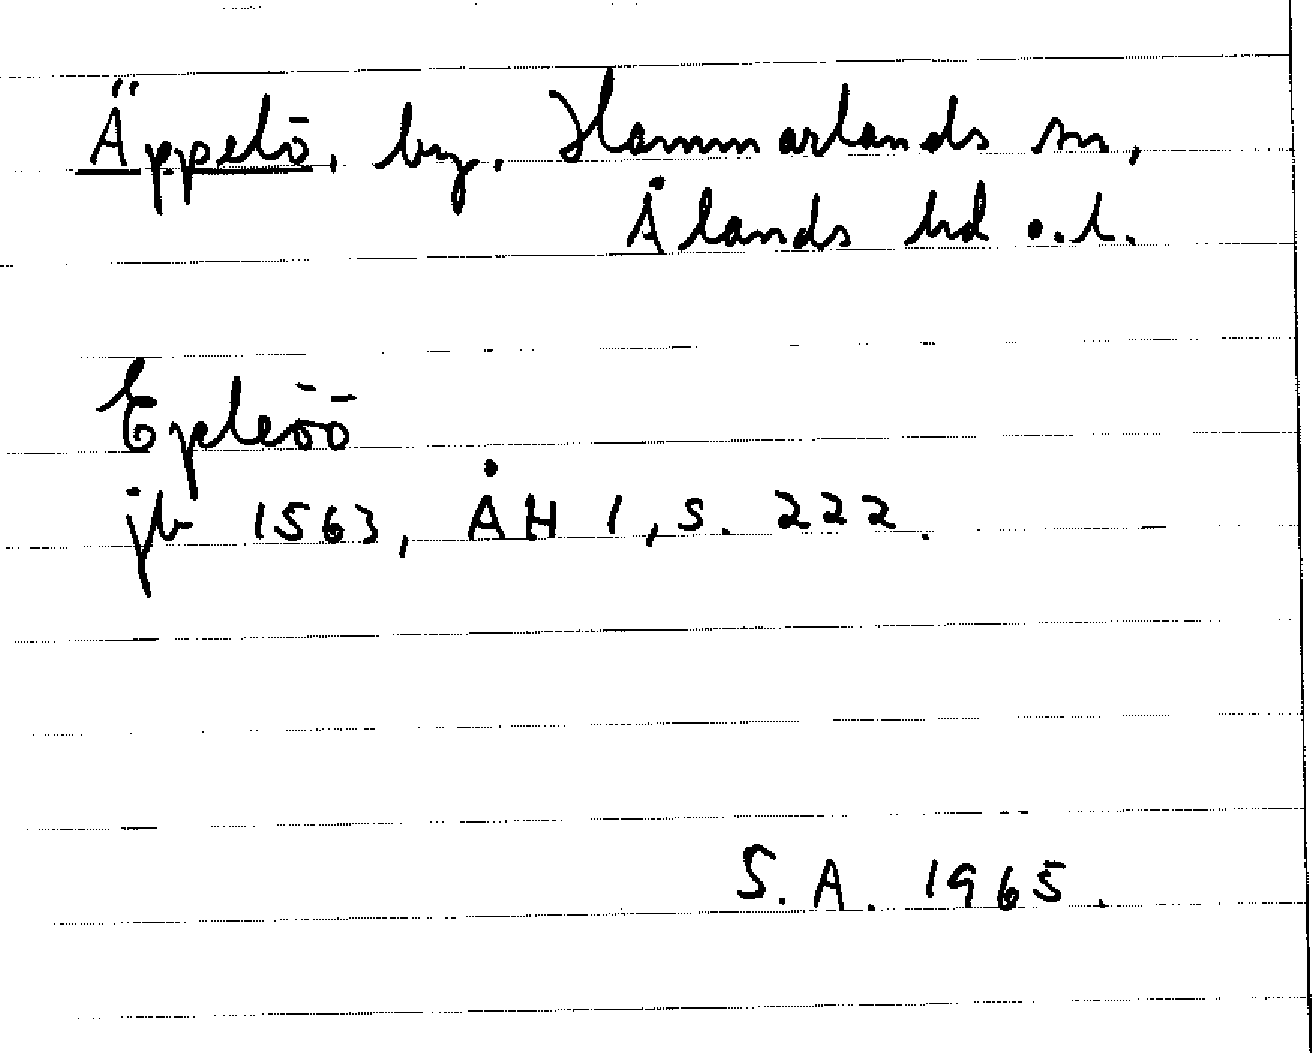 Äppelö, by, Hammarlands sn,
Ålands hd o.l.
Epleöö
jb 1563, ÅH 1, s. 222.
S.A. 1965.